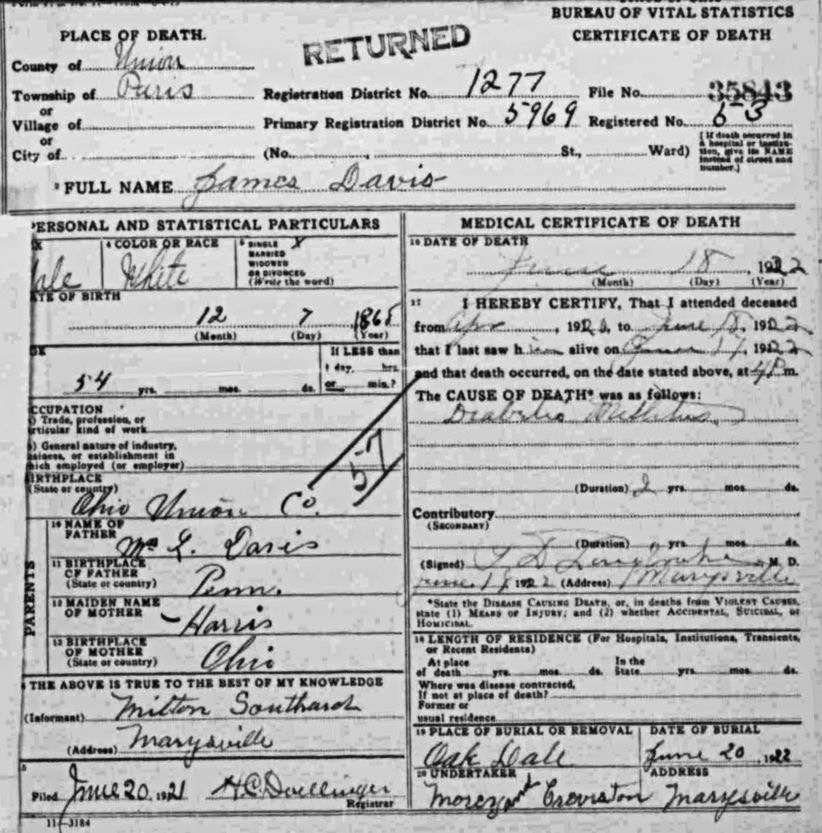 BUREAU OF VITAL STATISTICS
PLACE OF DEATH.
RETURNED
CERTIFICATE OF DEATH
County of Union
Township of Paris
Registration District No. 1277
File No. 35843
or
Village of
Primary Registration District No. 5969
Registered No. 53
or
City of
(No. , St., Ward)
(If death occurred in
a hospital or institu-
tion, give its NAME
instead of street and
number.)
FULL NAME James Davis
PERSONAL AND STATISTICAL PARTICULARS
4 COLOR OR RACE
White
5 SINGLE X
MARRIED
WIDOWED
OR DIVORCED
(Write the word)
ATE OF BIRTH
12 7
(Month) (Day) (Year)
54 yrs. mos. ds.
If LESS than
1 day, hrs.
or min.?
57
CCUPATION
Trade, profession, or
rticular kind of work
General nature of industry,
siness, or establishment in
hich employed (or employer)
BIRTHPLACE
(State or country)
Ohio Union Co.
PARENTS
10 NAME OF
FATHER
Davis
11 BIRTHPLACE
OF FATHER
(State or country)
Penn.
12 MAIDEN NAME
OF MOTHER
– Harris
13 BIRTHPLACE
OF MOTHER
(State or country)
Ohio
THE ABOVE IS TRUE TO THE BEST OF MY KNOWLEDGE
(Informant) Milton Southard
(Address) Marysville
Filed June 20, 1921 H.C. Doellinger
Registrar
11-3184
MEDICAL CERTIFICATE OF DEATH
16 DATE OF DEATH
June 18, 1922
(Month) (Day) (Year)
17 I HEREBY CERTIFY, That I attended deceased
from Apr , 192 , to June 18, 1922
that I last saw him alive on June 17, 1922
and that death occurred, on the date stated above, at 4 P m.
The CAUSE OF DEATH* was as follows:
Diabetis Mellitus
(Duration) 2 yrs. mos. ds.
Contributory
(SECONDARY)
(Duration) yrs. mos. ds.
(Signed) M. D.
June 1922 (Address) Marysville
*State the DISEASE CAUSING DEATH, or, in deaths from VIOLENT CAUSES,
state (1) MEANS OF INJURY; and (2) whether ACCIDENTAL, SUICIDAL, or
HOMICIDAL.
18 LENGTH OF RESIDENCE (For Hospitals, Institutions, Transients,
or Recent Residents)
At place
of death yrs. mos. ds.
In the
State yrs. mos. ds.
Where was disease contracted,
If not at place of death?
Former or
usual residence
19 PLACE OF BURIAL OR REMOVAL
Oak Dale
DATE OF BURIAL
June 20, 1922
20 UNDERTAKER
and Creviston
ADDRESS
Marysville